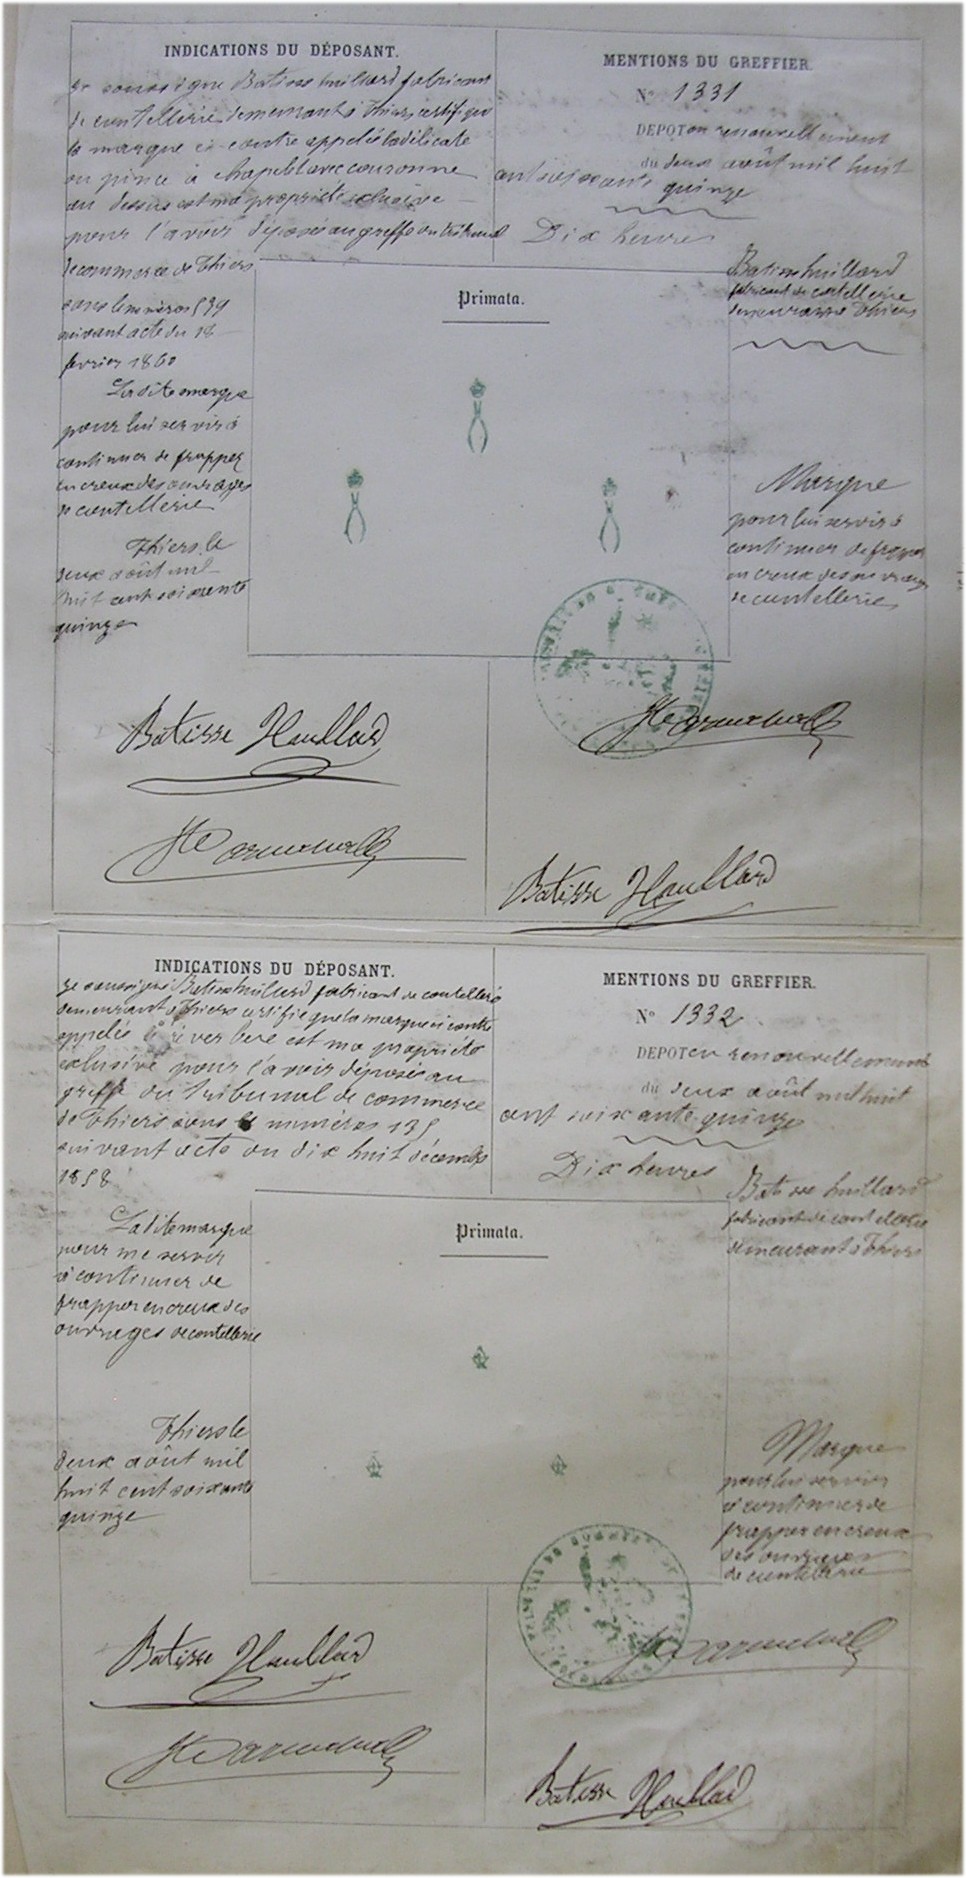 INDICATIONS DU DÉPOSANT.
Je soussigné Batisse huillard fabricant
de coutellerie demeurant à Thiers certifie que
la marque ci contre appelée la délicate
ou pince à chapeblanc couronne
au dessus est ma propriété exclusive
pour l'avoir déposée au greffe du tribunal
de commerce de Thiers
sous le numéros 539
suivant acte du 18
fevrier 1860
La dite marque
pour lui servir à
continuer de frapper
en creux des ouvrages
de coutellerie
Thiers le
deux août mil
huit cent soixante
quinze
Batisse Huillard
MENTIONS DU GREFFIER.
N° 1331
DEPOT en renouvellement
du deux août mil huit
cent soixante quinze
Dix heures
Batisse huillard
fabricant de coutellerie
demeurant à Thiers
Primata.
Marque
pour lui servir à
continuer de frapper
en creux des ouvrages
de coutellerie
Batisse Huillard
INDICATIONS DU DÉPOSANT.
Je soussigné Batisse huillard fabricant de coutellerie
demeurant à Thiers certifie que la marque ci contre
appelée le réverbere est ma propriété
exclusive pour l'avoir déposée au
greffe du tribunal de commerce
de Thiers sous le numéros 135
suivant acte du dix huit décembre
1858
La dite marque
pour me servir
à continuer de
frapper en creux des
ouvrages de coutellerie
Thiers le
deux août mil
huit cent soixante
quinze
Batisse Huillard
MENTIONS DU GREFFIER.
N° 1332
DEPOT en renouvellement
du deux août mil huit
cent soixante quinze
Dix heures
Batisse huillard
fabricant de coutellerie
demeurant à Thiers
Primata.
Marque
pour lui servir
à continuer de
frapper en creux
des ouvrages
de coutellerie
Batisse Huillard